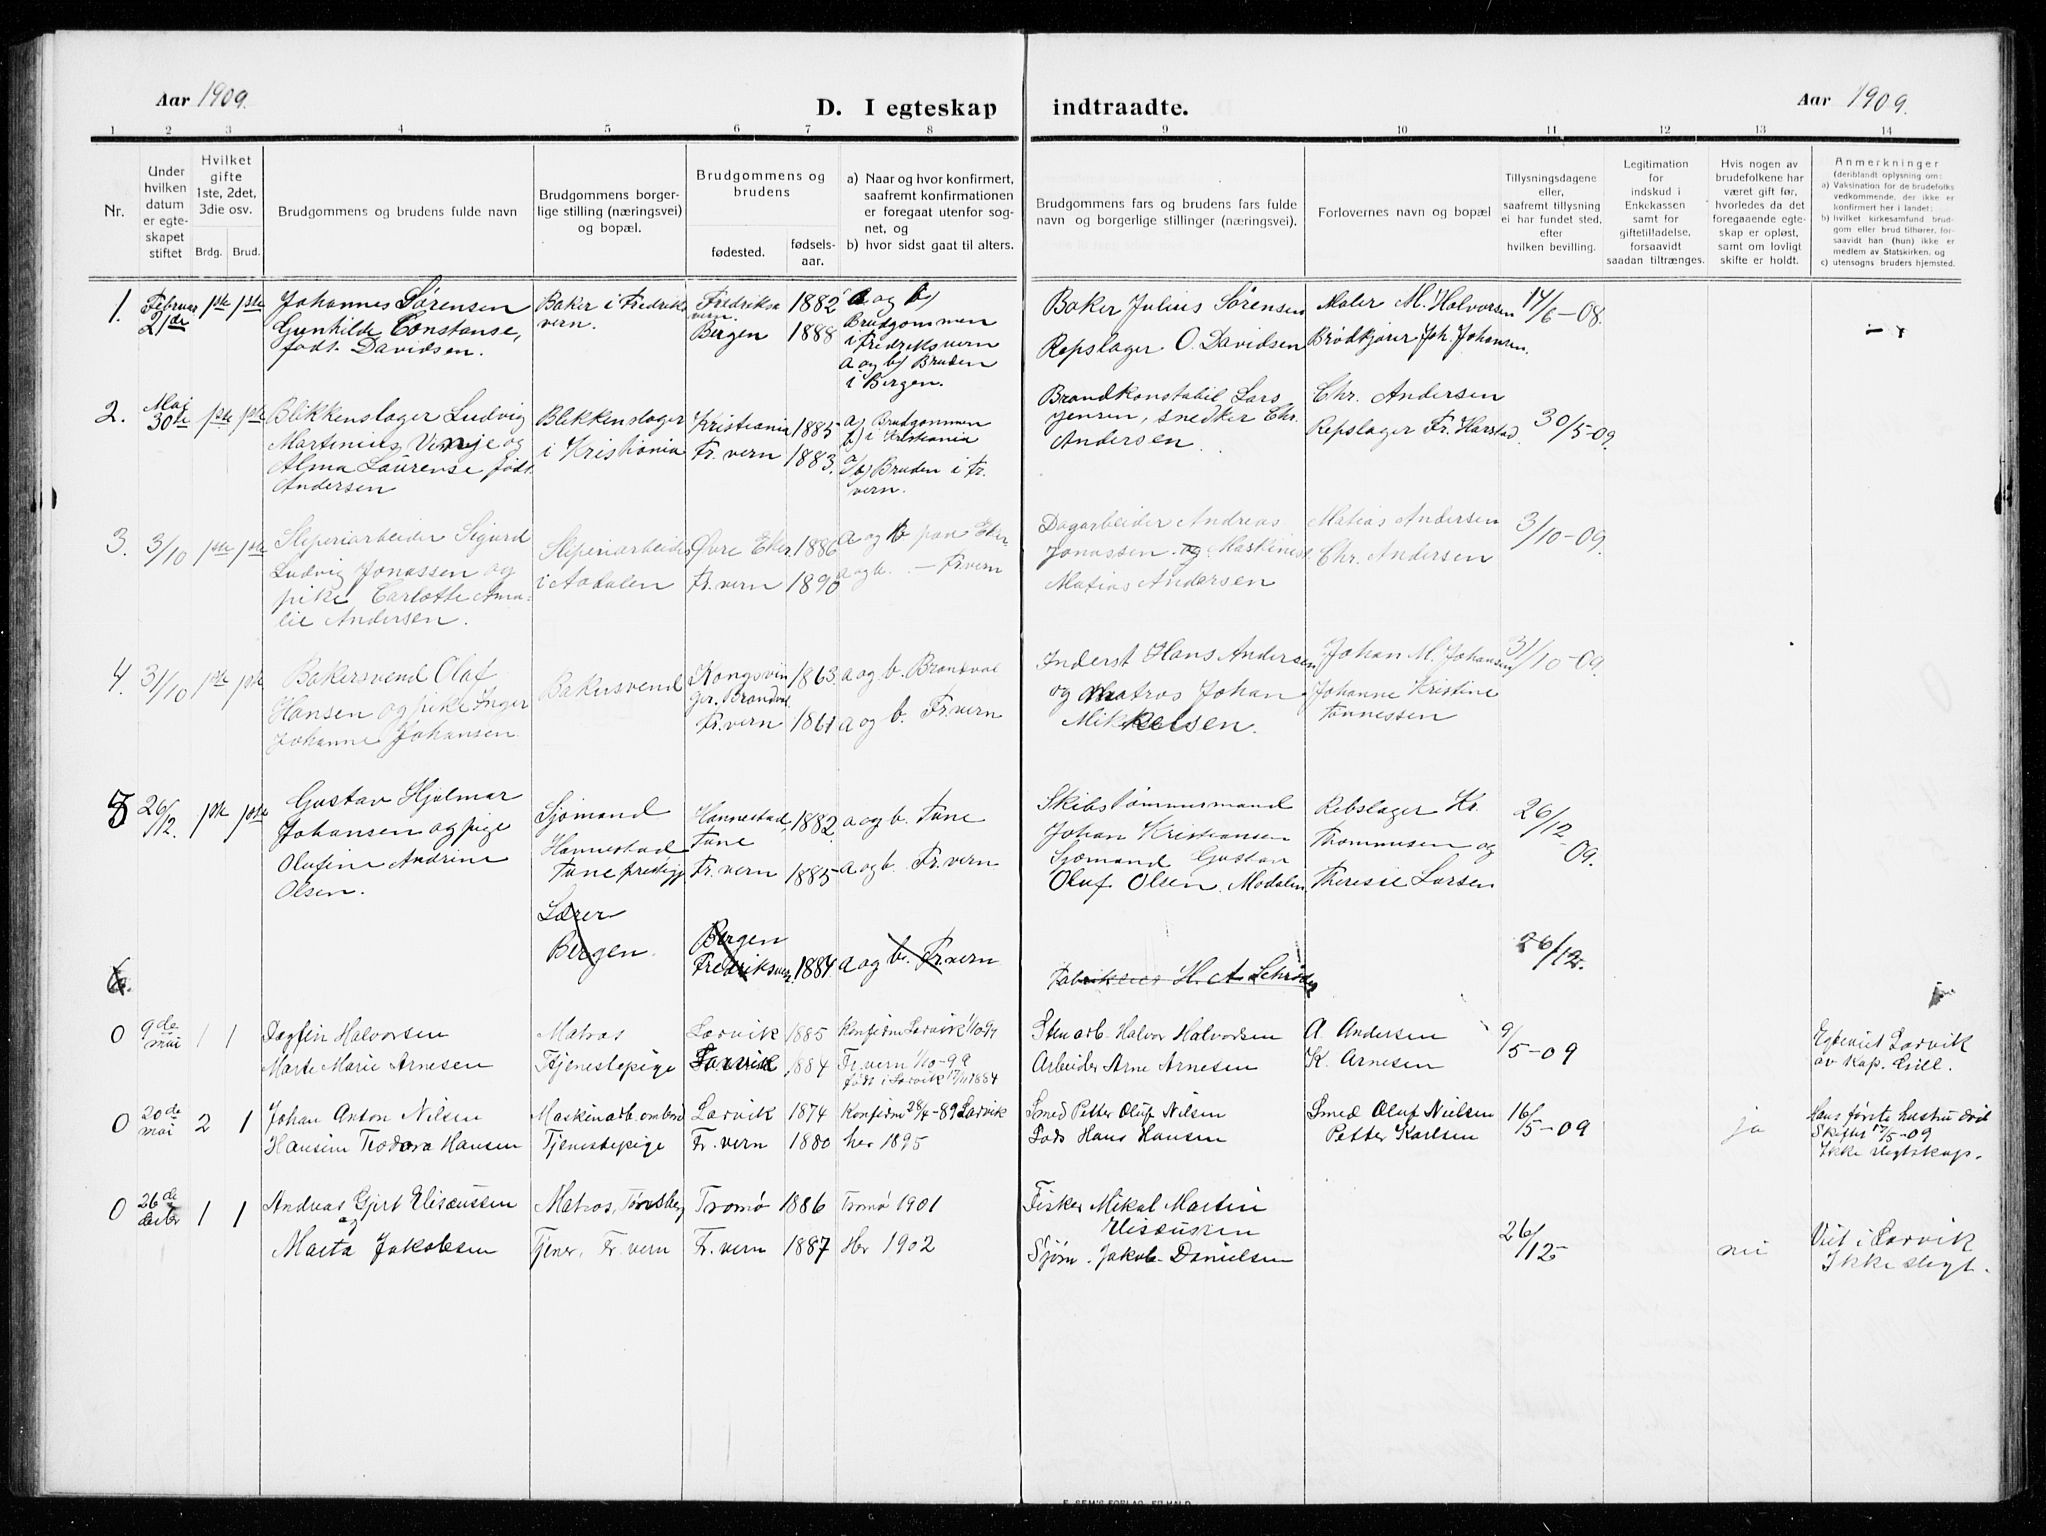 Aar 1909.
D. I egteskap indtraadte.
Aar 1909.
1 2 3 4 5 6 7 8 9 10 11 12 13 14
Nr.
Under hvilken datum er egteskapet stiftet
Hvilket gifte 1ste, 2det, 3die osv.
Brdg. Brud.
Brudgommens og brudens fulde navn
Brudgommens borgerlige stilling (næringsvei) og bopæl.
Brudgommens og brudens
fødested.
fødselsaar.
a) Naar og hvor konfirmert, saafremt konfirmationen er foregaat utenfor sognet, og
b) hvor sidst gaat til alters.
Brudgommens fars og brudens fars fulde navn og borgerlige stillinger (næringsvei).
Forlovernes navn og bopæl
Tillysningsdagene eller, saafremt tillysning ei har fundet sted, efter hvilken bevilling.
Legitimation for indskud i Enkekassen samt for giftetilladelse, forsaavidt saadan tiltrænges.
Hvis nogen av brudefolkene har været gift før, hvorledes da det foregaaende egteskap er opløst, samt om lovligt skifte er holdt.
Anmerkninger
(deriblandt oplysning om:
a) Vaksination for de brudefolks vedkommende, der ikke er konfirmert her i landet;
b) hvilket kirkesamfund brudgom eller brud tilhører, forsaavidt han (hun) ikke er medlem av Statskirken, og
c) utensogns bruders hjemsted.
1. Februar 21de 1ste 1ste
Johannes Sørensen
Gunhilde Constanse,
født Davidsen.
Baker i Fredriksvern.
Fredriksvern. 1882
Bergen 1888
a og b)
Brudgommen
i Fredriksvern
a og b) Bruden
i Bergen.
Baker Julius Sørensen
Repslager O. Davidsen
Maler M. Halvorsen
Brødkjører Joh. Johansen.
14/6-08.
2. Mai 30te 1ste 1ste
Blikkenslager Ludvig
Martinius Vinje og
Alma Laurense født
Andersen
Blikkenslager
i Kristiania
Kristiania 1885
Fr.vern 1883.
a) Brudgommen
b) i Kristiania
Bruden i Fr.
vern.
Brandkonstabel Lars
Jensen, snedker Chr.
Andersen
Chr. Andersen
Repslager Fr. Harstad.
30/5-09.
3. 3/10 1ste 1ste
Sliperiarbeider Sigurd
Ludvig Jonassen og
pike Carlotte Ama-
lie Andersen.
Sliperiarbeider
i Aadalen
Øvre Eker 1886
Fr.vern 1890
a og b paa Eker
a og b. - Fr.vern
Dagarbeider Andreas
Jonassen og Maskinist
Matias Andersen
Matias Andersen
Chr. Andersen
3/10-09.
4. 31/10 1ste 1ste
Bakersvend Olaf
Hansen og pike Inger
Johanne Johansen
Bakersvend
Kongsvin
ger, Brandval 1863
Fr.vern 1861
a og b. Brandval
a og b. Fr.vern
Inderst Hans Andersen
og Matros Johan
Mikkelsen.
Johan M. Johansen
Johanne Kristine
Tønnessen
31/10-09.
5 26/12. 1ste 1ste
Gustav Hjalmar
Johansen og pige
Olufine Andrine
Olsen.
Sjømand
Hannestad
Tune prestegj
Hannestad 1882
Tune
Fr.vern 1885
a og b. Tune
a og b. Fr.vern
Skibstømmermand
Johan Kristiansen
Sjømand Gustav
Oluf Olsen. Modalen
Rebslager Kr.
Thommesen og
Theresie Larsen
26/12-09.
6.
Lærer
Bergen.
Bergen
Fredriksvern. 1884
a og b. Fr.vern
Fabrikeier H. A. Schrøder
26/12.
0 9de mai 1 1
Dagfin Halvorsen
Marte Marie Arnesen
Matros
Tjenestepige
Larvik 1885
Larvik 1884
Konfirm Larvik
Fr.vern 1/10-99
født i Larvik 17/11 1884
Stenarb. Halvor Halvorsen
Arbeider Arne Arnesen
A. Andersen
K. Arnesen
9/5-09
Egteviet Larvik
av kap. Lill.
0 20de mai 2 1
Johan Anton Nilsen
Hansine Teodora Hansen
Maskinarb. ombord
Tjenestepige
Larvik 1874
Fr.vern 1880
Konfirm 28/4-89 Larvik
her 1895
Smed Petter Oluf Nilsen
Lods Hans Hansen
Smed Oluf Nielsen
Petter Karlsen
16/5-09
ja
Hans første hustru død
Skifte 17/5-09
Ikke slegtskap.
0 26de decbr 1 1
Andreas Gjert Elisæussen
og
Marta Jakobsen
Matros, Tønsberg
Tjener, Fr.vern
Tromø 1886
Fr.vern 1887
Tromø 1901
Her 1902
Fisker Mikal Martin
Elisæussen
Sjøm. Jakob Danielsen
26/12
nei
Viet i Larvik
Ikke slegt.